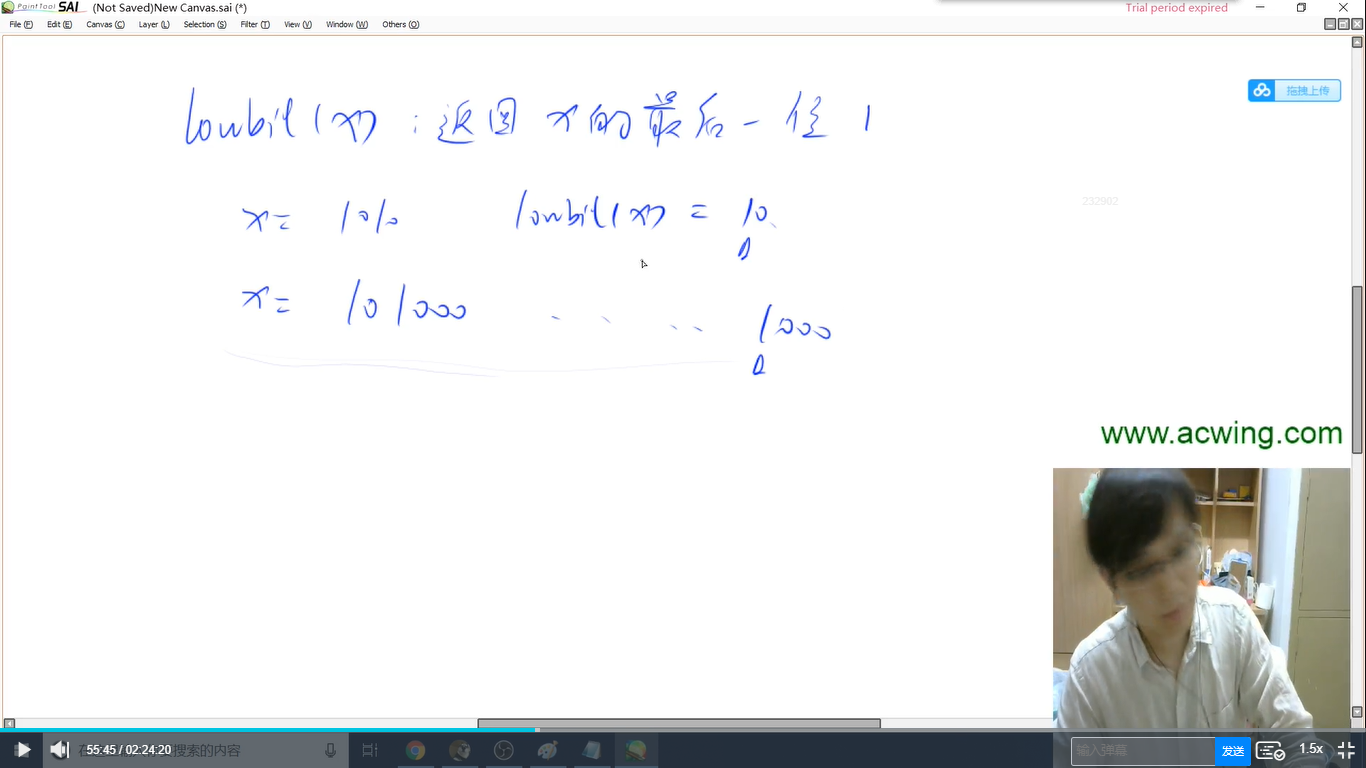 PaintTool SAI (Not Saved)New Canvas.sai (*) Trial period expired
File (F) Edit (E) Canvas (C) Layer (L) Selection (S) Filter (T) View (V) Window (W) Others (O)
拖拽上传
lowbit(x) : 返回 x的最后一位 1
x= 1010 lowbit(x) = 10
232902
x= 101000 .. .. 1000
www.acwing.com
55:45 / 02:24:20 搜索的内容 输入弹幕 发送 1.5x